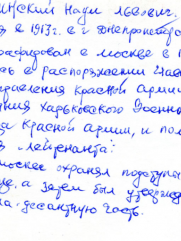 инский Наум Львович.
в 1913г. в г. Днепропетров
рафирован в Москве в 1
сь в распоряжении Глав
равления Красной Арми
ния Харьковского Военно
а Красной армии, и пол
в лейтенанта:
москве охранял подступы
е, а затем был утвержде
на-десантную часть.